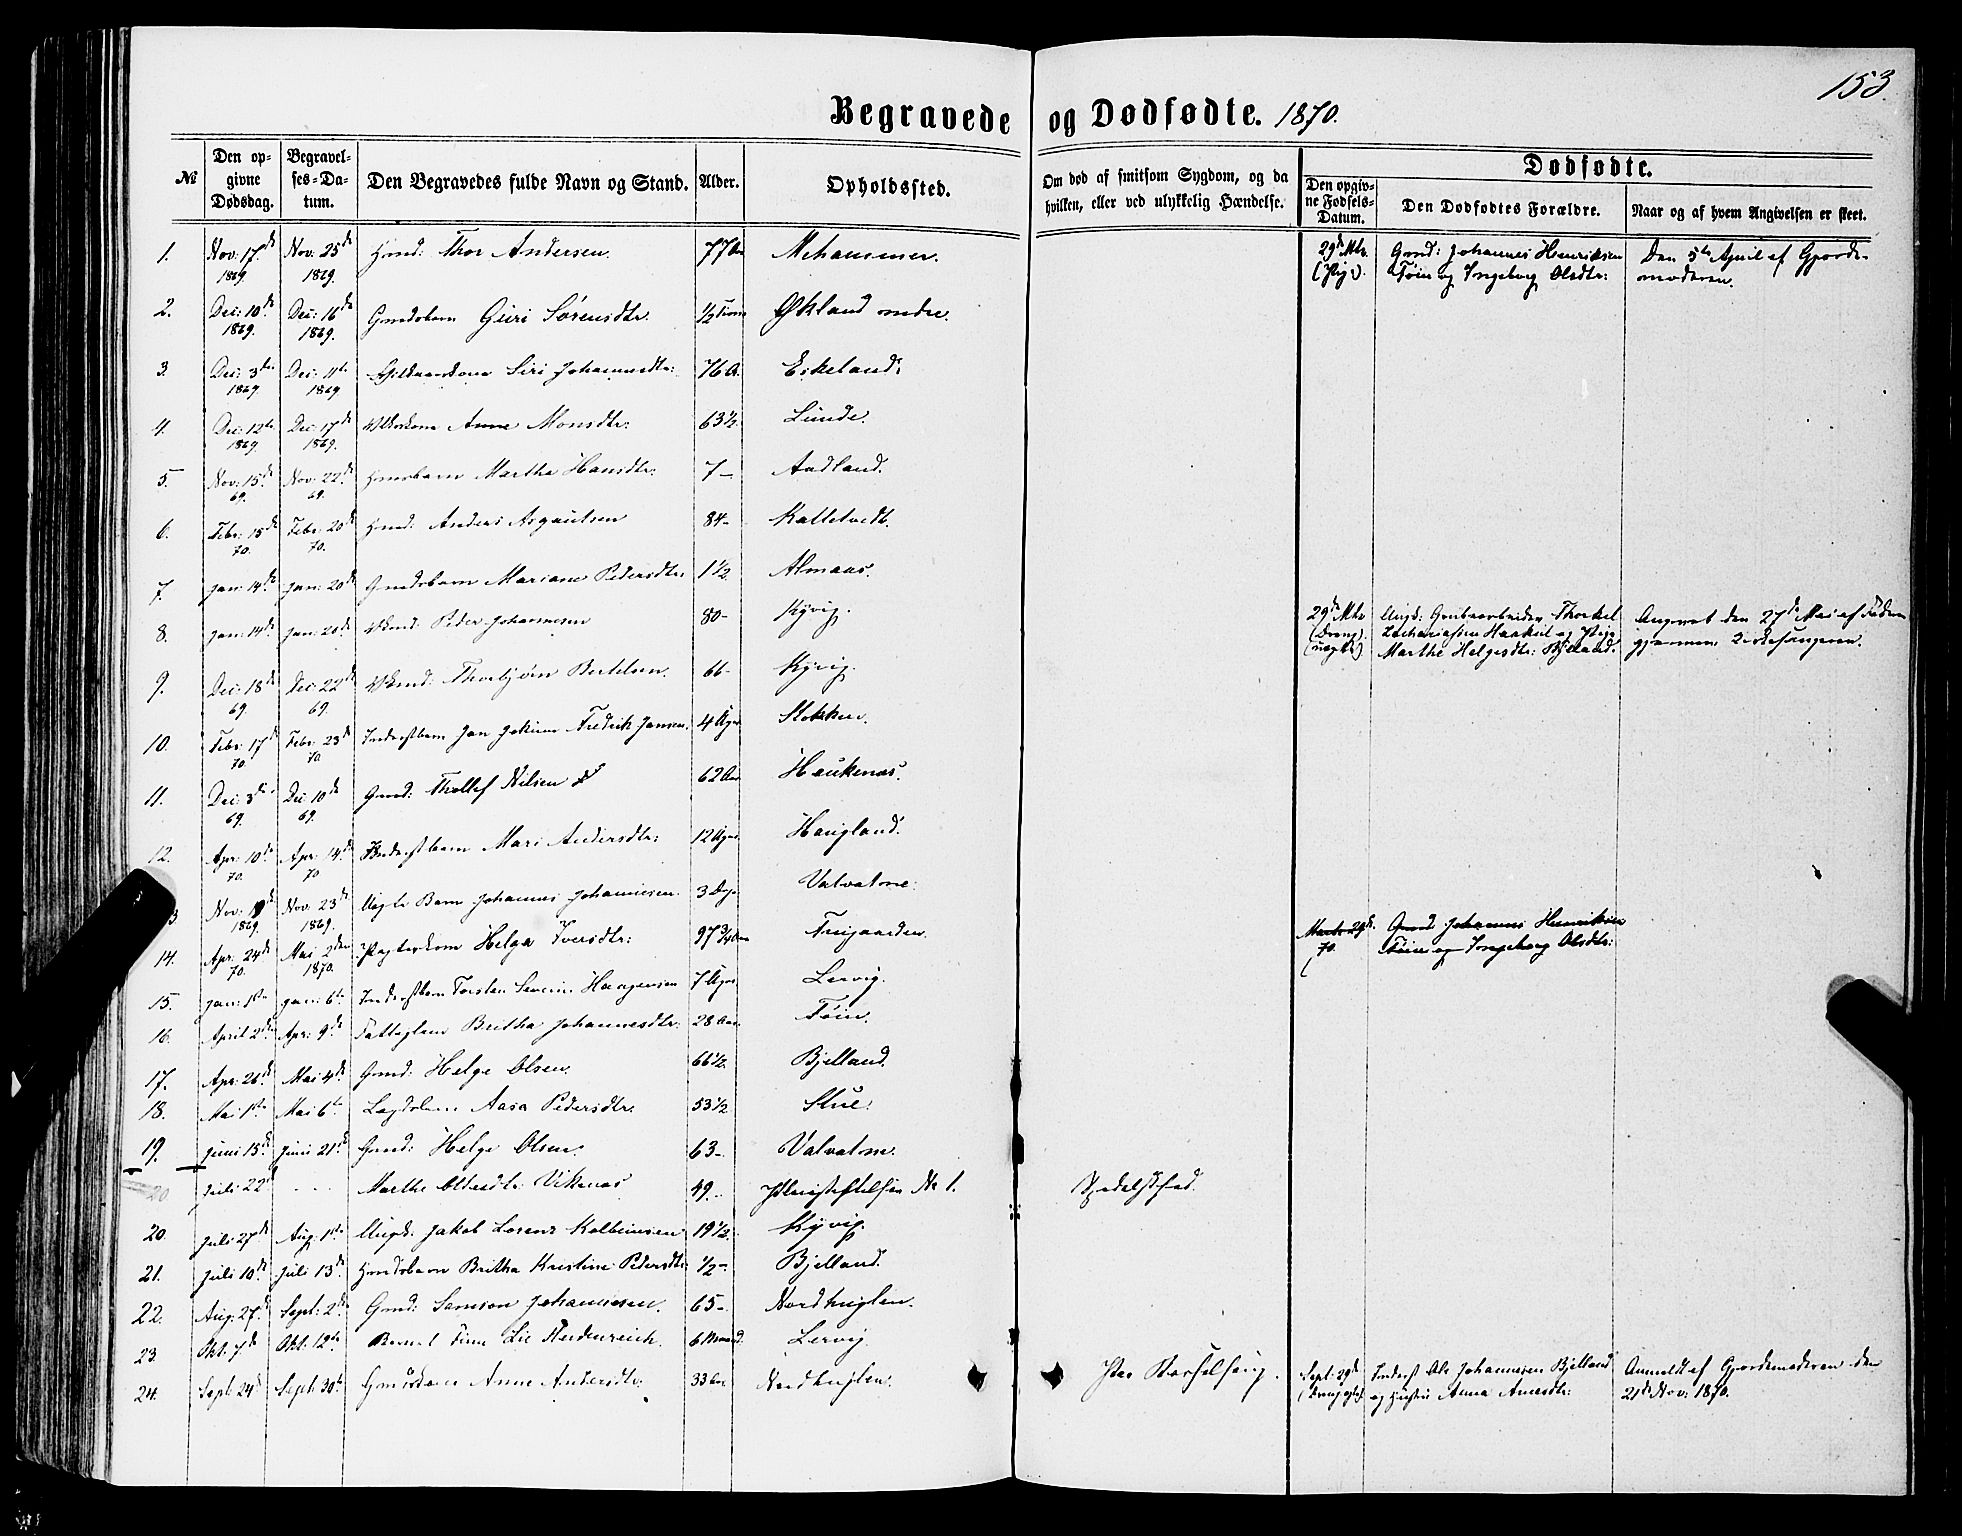 153.
Begravede og Dødfødte. 1870.
№
Den opgivne Dødsdag.
Begravelses-Datum.
Den Begravedes fulde Navn og Stand.
Alder.
Opholdssted.
Om død af smitsom Sygdom, og da hvilken, eller ved ulykkelig Hændelse.
Dødfødte.
Den opgivne Fødsels-Datum.
Den Dødfødtes Forældre.
Naar og af hvem Angivelsen er skeet.
1. Nov. 17de 1869. Nov. 25de 1869. Gmd: Thor Andersen. 77 Aar Mehammer.
29de Mts. (Pige). Gmd: Johannes Henriksen Føien og Ingeborg Olsdtr: Den 5te April af Gjordemoderen.
2. Dec: 10de 1869. Dec: 16de 1869. Gmdsbarn Guri Sørensdtr. 1/2 Økland
3. Dec: 3die 1869. Dec: 11te 1869. Siri Johannesdtr: 76 A. Eskeland.
4. Dec: 12te 1869. Dec: 17de 1869. Anne Monsdtr: 63 1/2. Lunde.
5. Nov: 15de 69. Nov: 22de 69. Martha Hansdtr: 7 - Aadland.
6. Febr: 15de 70. Febr: 20de 70. Gmd: Anders Asgautsen 84 - Kattetvedt.
7. Jan: 14de Jan: 20de Gmdsbarn Mariane Pedersdtr: 1 1/2. Almaas.
8. Jan: 14de Jan: 20de Peder Johannesen 80 - Kyvig.
29de Mts (Dreng) (uægte) Ungk: Thorkel Zachariassen Haakul og Pige Marthe Helgesdtr: Bjelland. Angivet den 27de Mai af Faderen gjennem Kirkesangeren.
9. Dec: 18de 69. Dec: 22de 69. Thorbjørn Bertelsen. 66 - Kyvig.
10. Febr: 17de 70. Febr: 23de 70. Inderstbarn Jan Jokum Fredrik Jansen. 4 Uger Stokken.
11. Dec: 3die 69. Dec: 10de 69. Gmd: Thollef Nilsen 62 Aar Haukenæs.
12. Apr: 10de 70. Apr: 14de 70 Inderstbarn Mari Andersdtr: 12 Uger. Haugland.
13 Nov: 19de 1869. Nov: 23de 1869. Uægte Barn Johannes Johannesen. 3 Dage Valvatne.
14. Apr: 24de 70. Mai 2den 1870. Helga Iversdtr: 97 3/4 Aar
Marts 29de. 70. Gmd Johannes Henriksen Føien og Ingeborg Olsdtr:
15. Jan: 1ste Jan: 6te Inderstbarn Torsten Severin Haagensen 7 Uger Lervig.
16. April 2den Apr: 9de Fattiglem Britha Johannesdtr: 28 Aar. Føien.
17. Apr: 26de Mai 4de Gmd: Helge Olsen. 66 1/2. Bjelland.
18. Mai 1ste Mai 6te Aasa Pedersdtr. 53 1/2 Stue.
19. Juni 15de Juni 21de Gmd: Helge Olsen. 63 - Valvatne.
20 Juli 22 - - - Marthe Vikenæs 49 - Pleiestiftelsen № 1. Spedalskhed.
20. Juli 27de Aug: 1ste Ungk: Jakob Lorens Kolbeinsen 19 1/2. Kyvig.
21. Juli 10de Juli 13de Gmdsbarn Britha Kristine Pedersdtr: 1/2 - Bjelland.
22. Aug: 27de Sept: 2den Gmd: Samson Johannesen. 65 - Nordhuglen.
23. Okt: 7de Okt: 12te Barnet Finn Lie Heidenreich. 6 Maaned. Lervig
24. Sept: 24de Sept: 30te Anne Andersdtr: 33 Aar Nordhuglen. Barselseng.
Sept: 29de Inderst Ole Johannesen Bjelland og Hustru Anna Anesdtr: Anmeldt af Gjordemoderen den 21de Nov: 1870.